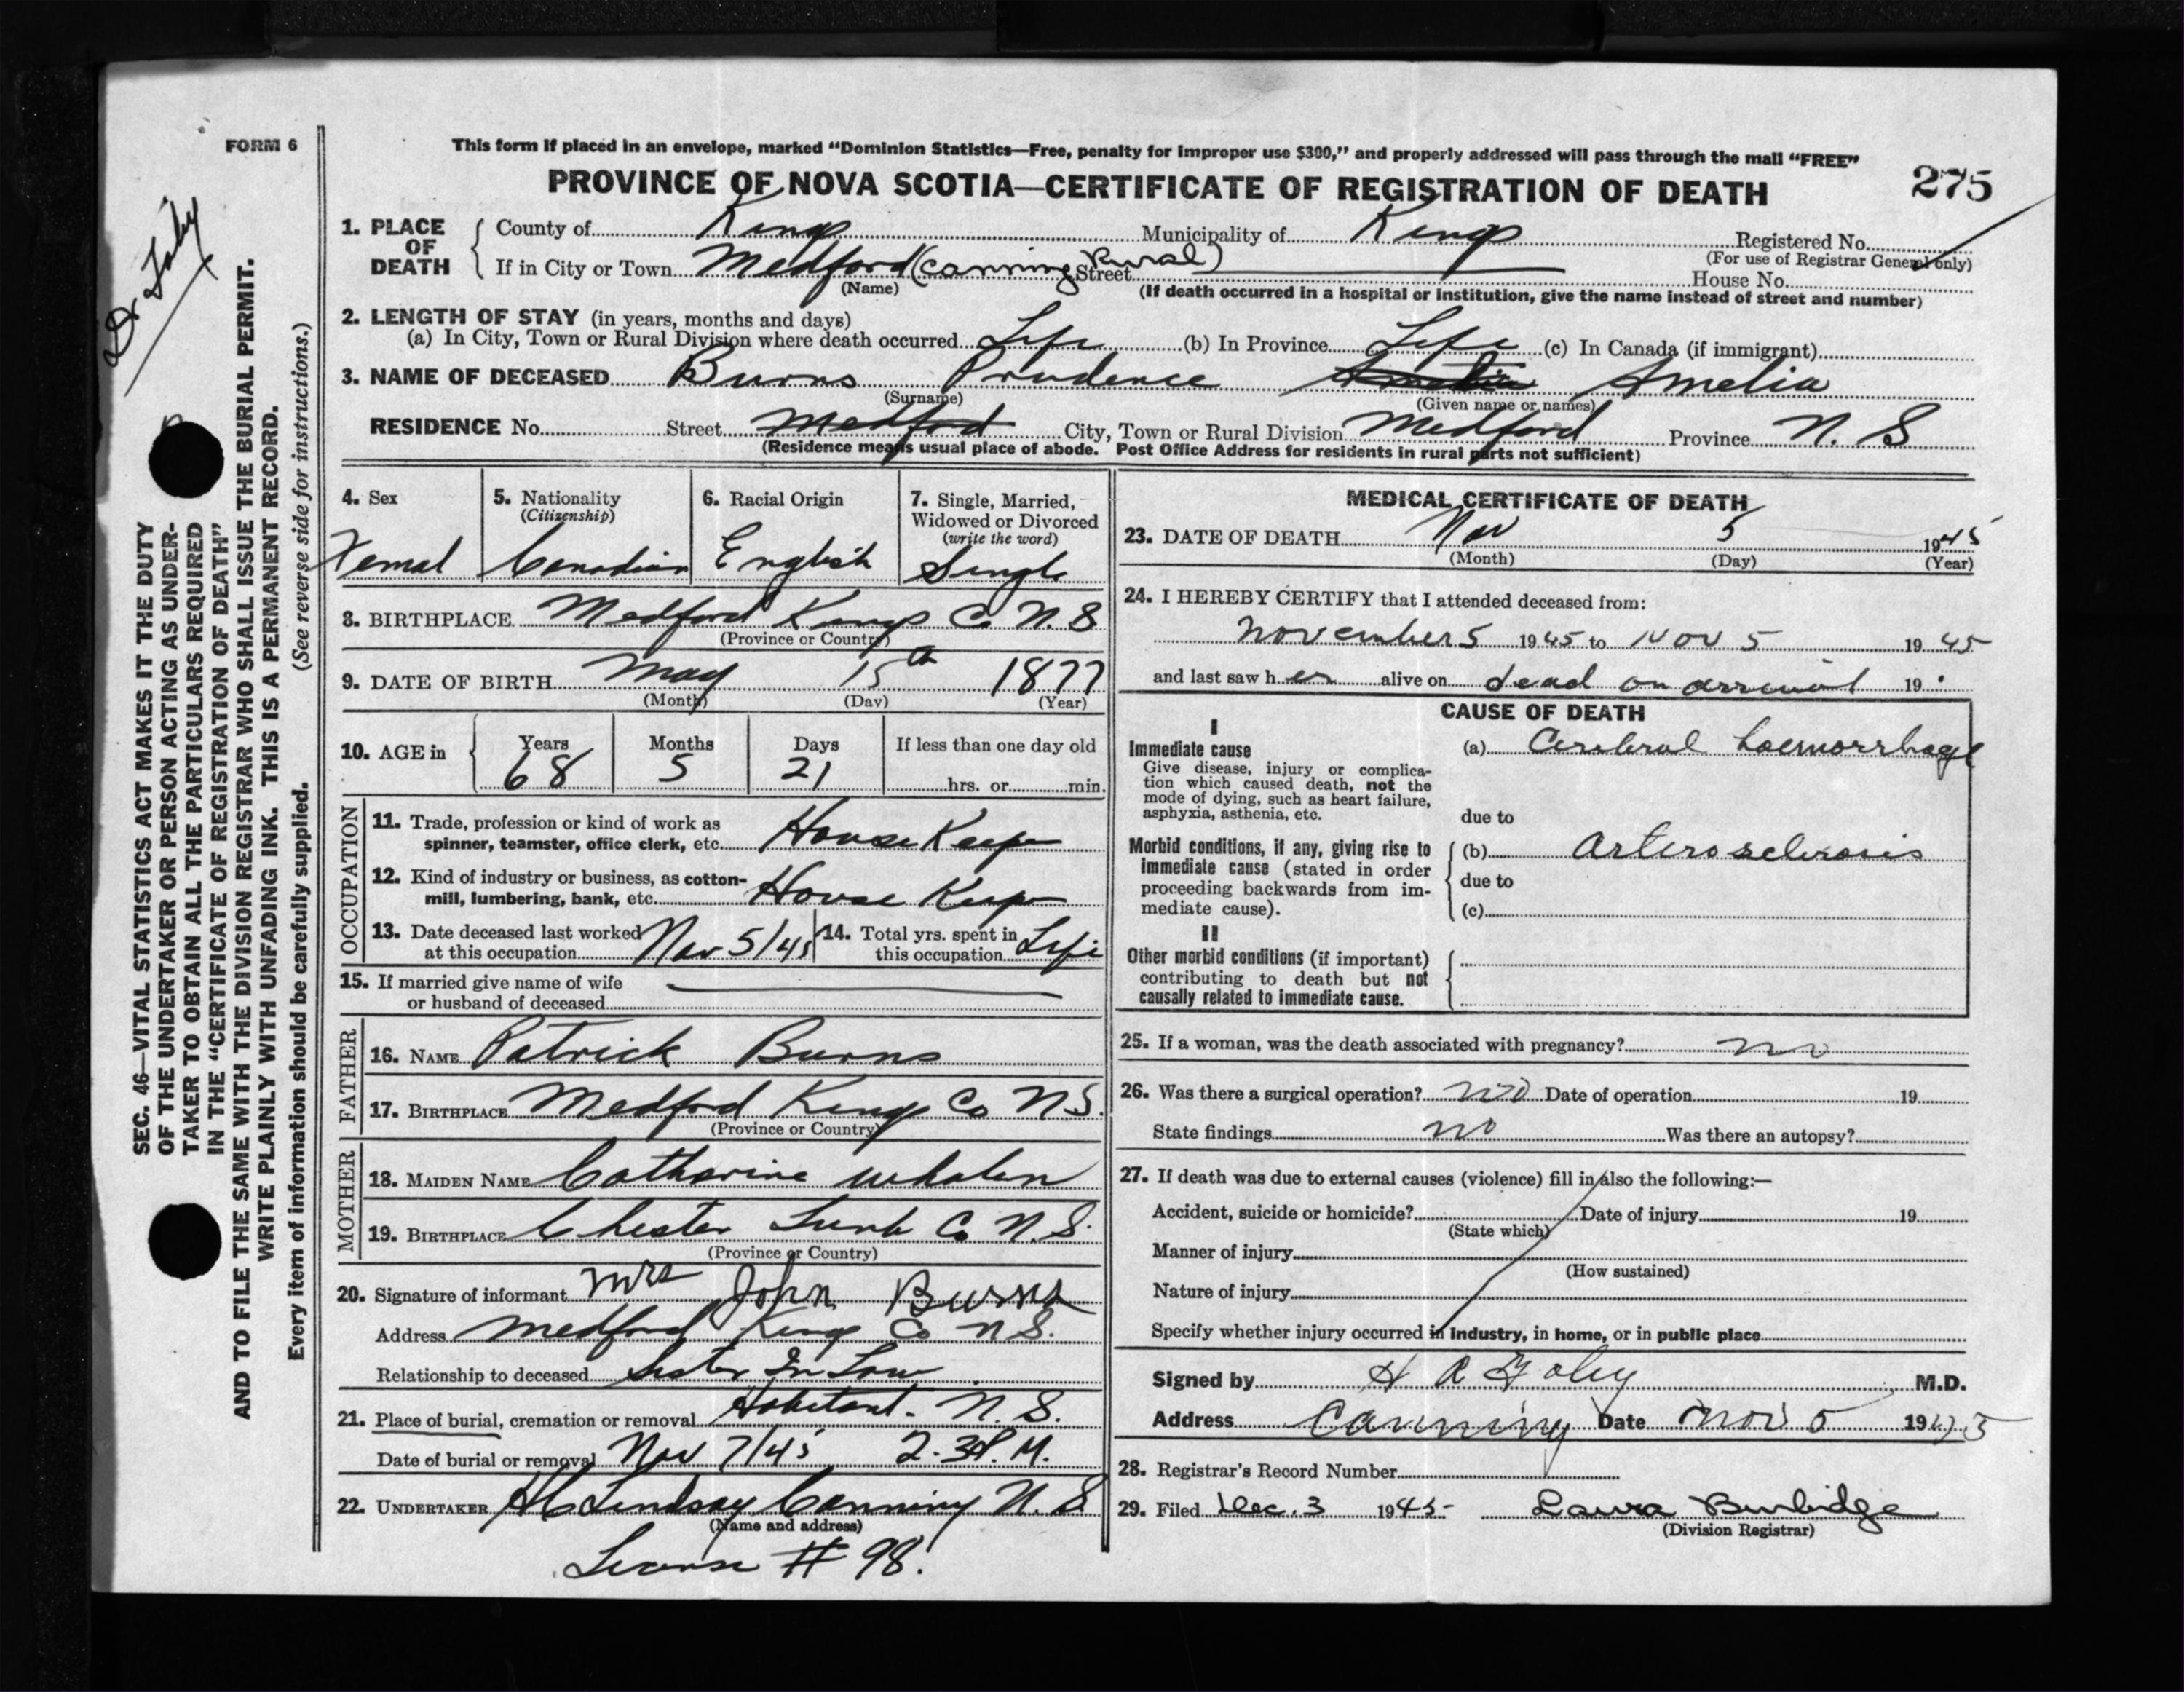 FORM 6
This form if placed in an envelope, marked "Dominion Statistics—Free, penalty for improper use $300," and properly addressed will pass through the mail "FREE"
PROVINCE OF NOVA SCOTIA—CERTIFICATE OF REGISTRATION OF DEATH 275
Dr Foley
SEC. 46—VITAL STATISTICS ACT MAKES IT THE DUTY
OF THE UNDERTAKER OR PERSON ACTING AS UNDER-
TAKER TO OBTAIN ALL THE PARTICULARS REQUIRED
IN THE "CERTIFICATE OF REGISTRATION OF DEATH"
AND TO FILE THE SAME WITH THE DIVISION REGISTRAR WHO SHALL ISSUE THE BURIAL PERMIT.
WRITE PLAINLY WITH UNFADING INK. THIS IS A PERMANENT RECORD.
Every item of information should be carefully supplied. (See reverse side for instructions.)
1. PLACE OF DEATH
County of Kings Municipality of Kings Registered No.
(For use of Registrar General only)
If in City or Town Medford (Canning Rural) Street House No.
(Name) (If death occurred in a hospital or institution, give the name instead of street and number)
2. LENGTH OF STAY (in years, months and days)
(a) In City, Town or Rural Division where death occurred Life (b) In Province Life (c) In Canada (if immigrant)
3. NAME OF DECEASED Burns Prudence Amelia Amelia
(Surname) (Given name or names)
RESIDENCE No. Street Medford City, Town or Rural Division Medford Province N. S
(Residence means usual place of abode. Post Office Address for residents in rural parts not sufficient)
4. Sex
Femal
5. Nationality
(Citizenship)
Canadian
6. Racial Origin
English
7. Single, Married,
Widowed or Divorced
(write the word)
Single
8. BIRTHPLACE Medford Kings Co N. S
(Province or Country)
9. DATE OF BIRTH May 15th 1877
(Month) (Day) (Year)
10. AGE in Years Months Days If less than one day old
68 5 21 hrs. or min.
OCCUPATION
11. Trade, profession or kind of work as
spinner, teamster, office clerk, etc. House Keeper
12. Kind of industry or business, as cotton-
mill, lumbering, bank, etc. House Keeper
13. Date deceased last worked
at this occupation Nov 5/45
14. Total yrs. spent in
this occupation Life
15. If married give name of wife
or husband of deceased
FATHER
16. NAME Patrick Burns
17. BIRTHPLACE Medford Kings Co N S.
(Province or Country)
MOTHER
18. MAIDEN NAME Catharine Whalen
19. BIRTHPLACE Chester Lunb Co N. S.
(Province or Country)
20. Signature of informant Mrs John Burns
Address Medford Kings Co N S.
Relationship to deceased Sister In Law
21. Place of burial, cremation or removal Habitant. N. S.
Date of burial or removal Nov 7/45 2.30 P. M.
22. UNDERTAKER Lindsay Canning N. S
(Name and address)
License # 98.
MEDICAL CERTIFICATE OF DEATH
23. DATE OF DEATH Nov 5 1945
(Month) (Day) (Year)
24. I HEREBY CERTIFY that I attended deceased from:
November 5 1945 to Nov 5 19 45
and last saw her alive on dead on arrival 19
CAUSE OF DEATH
I
Immediate cause
Give disease, injury or complica-
tion which caused death, not the
mode of dying, such as heart failure,
asphyxia, asthenia, etc.
(a) Cerebral haemorrhage
due to
Morbid conditions, if any, giving rise to
immediate cause (stated in order
proceeding backwards from im-
mediate cause).
(b) Arterosclerosis
due to
(c)
II
Other morbid conditions (if important)
contributing to death but not
causally related to immediate cause.
25. If a woman, was the death associated with pregnancy? no
26. Was there a surgical operation? no Date of operation 19
State findings no Was there an autopsy?
27. If death was due to external causes (violence) fill in also the following:—
Accident, suicide or homicide? Date of injury 19
(State which)
Manner of injury
(How sustained)
Nature of injury
Specify whether injury occurred in industry, in home, or in public place
Signed by H R Foley M.D.
Address Canning Date Nov 5 1945
28. Registrar's Record Number
29. Filed Dec. 3 1945 Laura Burbidge
(Division Registrar)